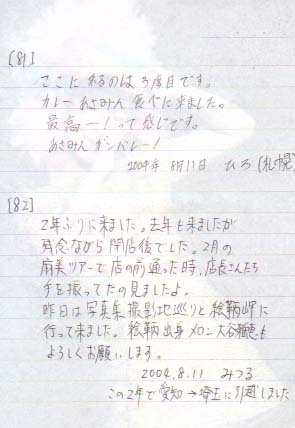 [81]
ここに来るのは3度目です。
カレーあさみん食べに来ました。
最高ー!って感じです。
あさみんガンバレー!
2004年 8月11日 ひろ(札幌)
[82]
2年ぶりに来ました。去年も来ましたが
残念ながら閉店後でした。2月の
麻美ツアーで店の前通った時、店長さんたち
手を振ってたの見ましたよ。
昨日は写真集撮影地巡りと絵鞆岬に
行って来ました。絵鞆出身メロン大谷雅恵も
よろしくお願いします。
2004.8.11 みつる
この2年で愛知→埼玉に引越しました